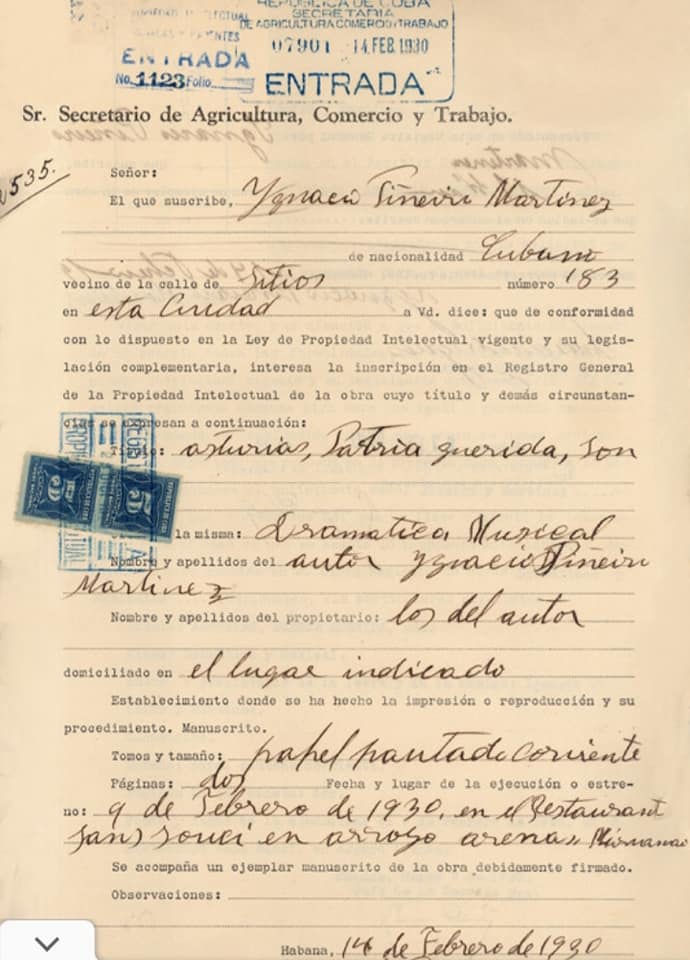 REPUBLICA DE CUBA
SECRETARIA
DE AGRICULTURA COMERCIO Y TRABAJO
07901 14 FEB. 1930
ENTRADA
ENTRADA
No. 1123 Folio
Sr. Secretario de Agricultura, Comercio y Trabajo.
535.
Señor:
El que suscribe, Ygnacio Piñeiro Martinez
de nacionalidad Cubano
vecino de la calle de Sitios número 183
en esta Ciudad a Vd. dice: que de conformidad
con lo dispuesto en la Ley de Propiedad Intelectual vigente y su legis-
lación complementaria, interesa la inscripción en el Registro General
de la Propiedad Intelectual de la obra cuyo título y demás circunstan-
cias se expresan a continuación:
Título: asturias, Patria querida, son
la misma: Dramatica Musical
Nombre y apellidos del autor Ygnacio Piñeiro
Martinez
Nombre y apellidos del propietario: los del autor
domiciliado en el lugar indicado
Establecimiento donde se ha hecho la impresión o reproducción y su
procedimiento. Manuscrito.
Tomos y tamaño: papel pautado corriente
Páginas: dos Fecha y lugar de la ejecución o estre-
no: 9 de Febrero de 1930. en el Restaurant
Sans Souci en arroyo arenas
Se acompaña un ejemplar manuscrito de la obra debidamente firmado.
Observaciones:
Habana, 14 de Febrero de 1930